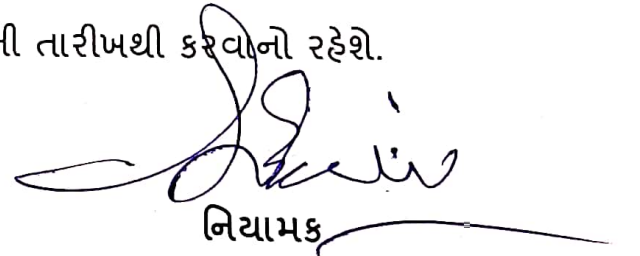 તારીખથી કરવાનો રહેશે.
નિયામક